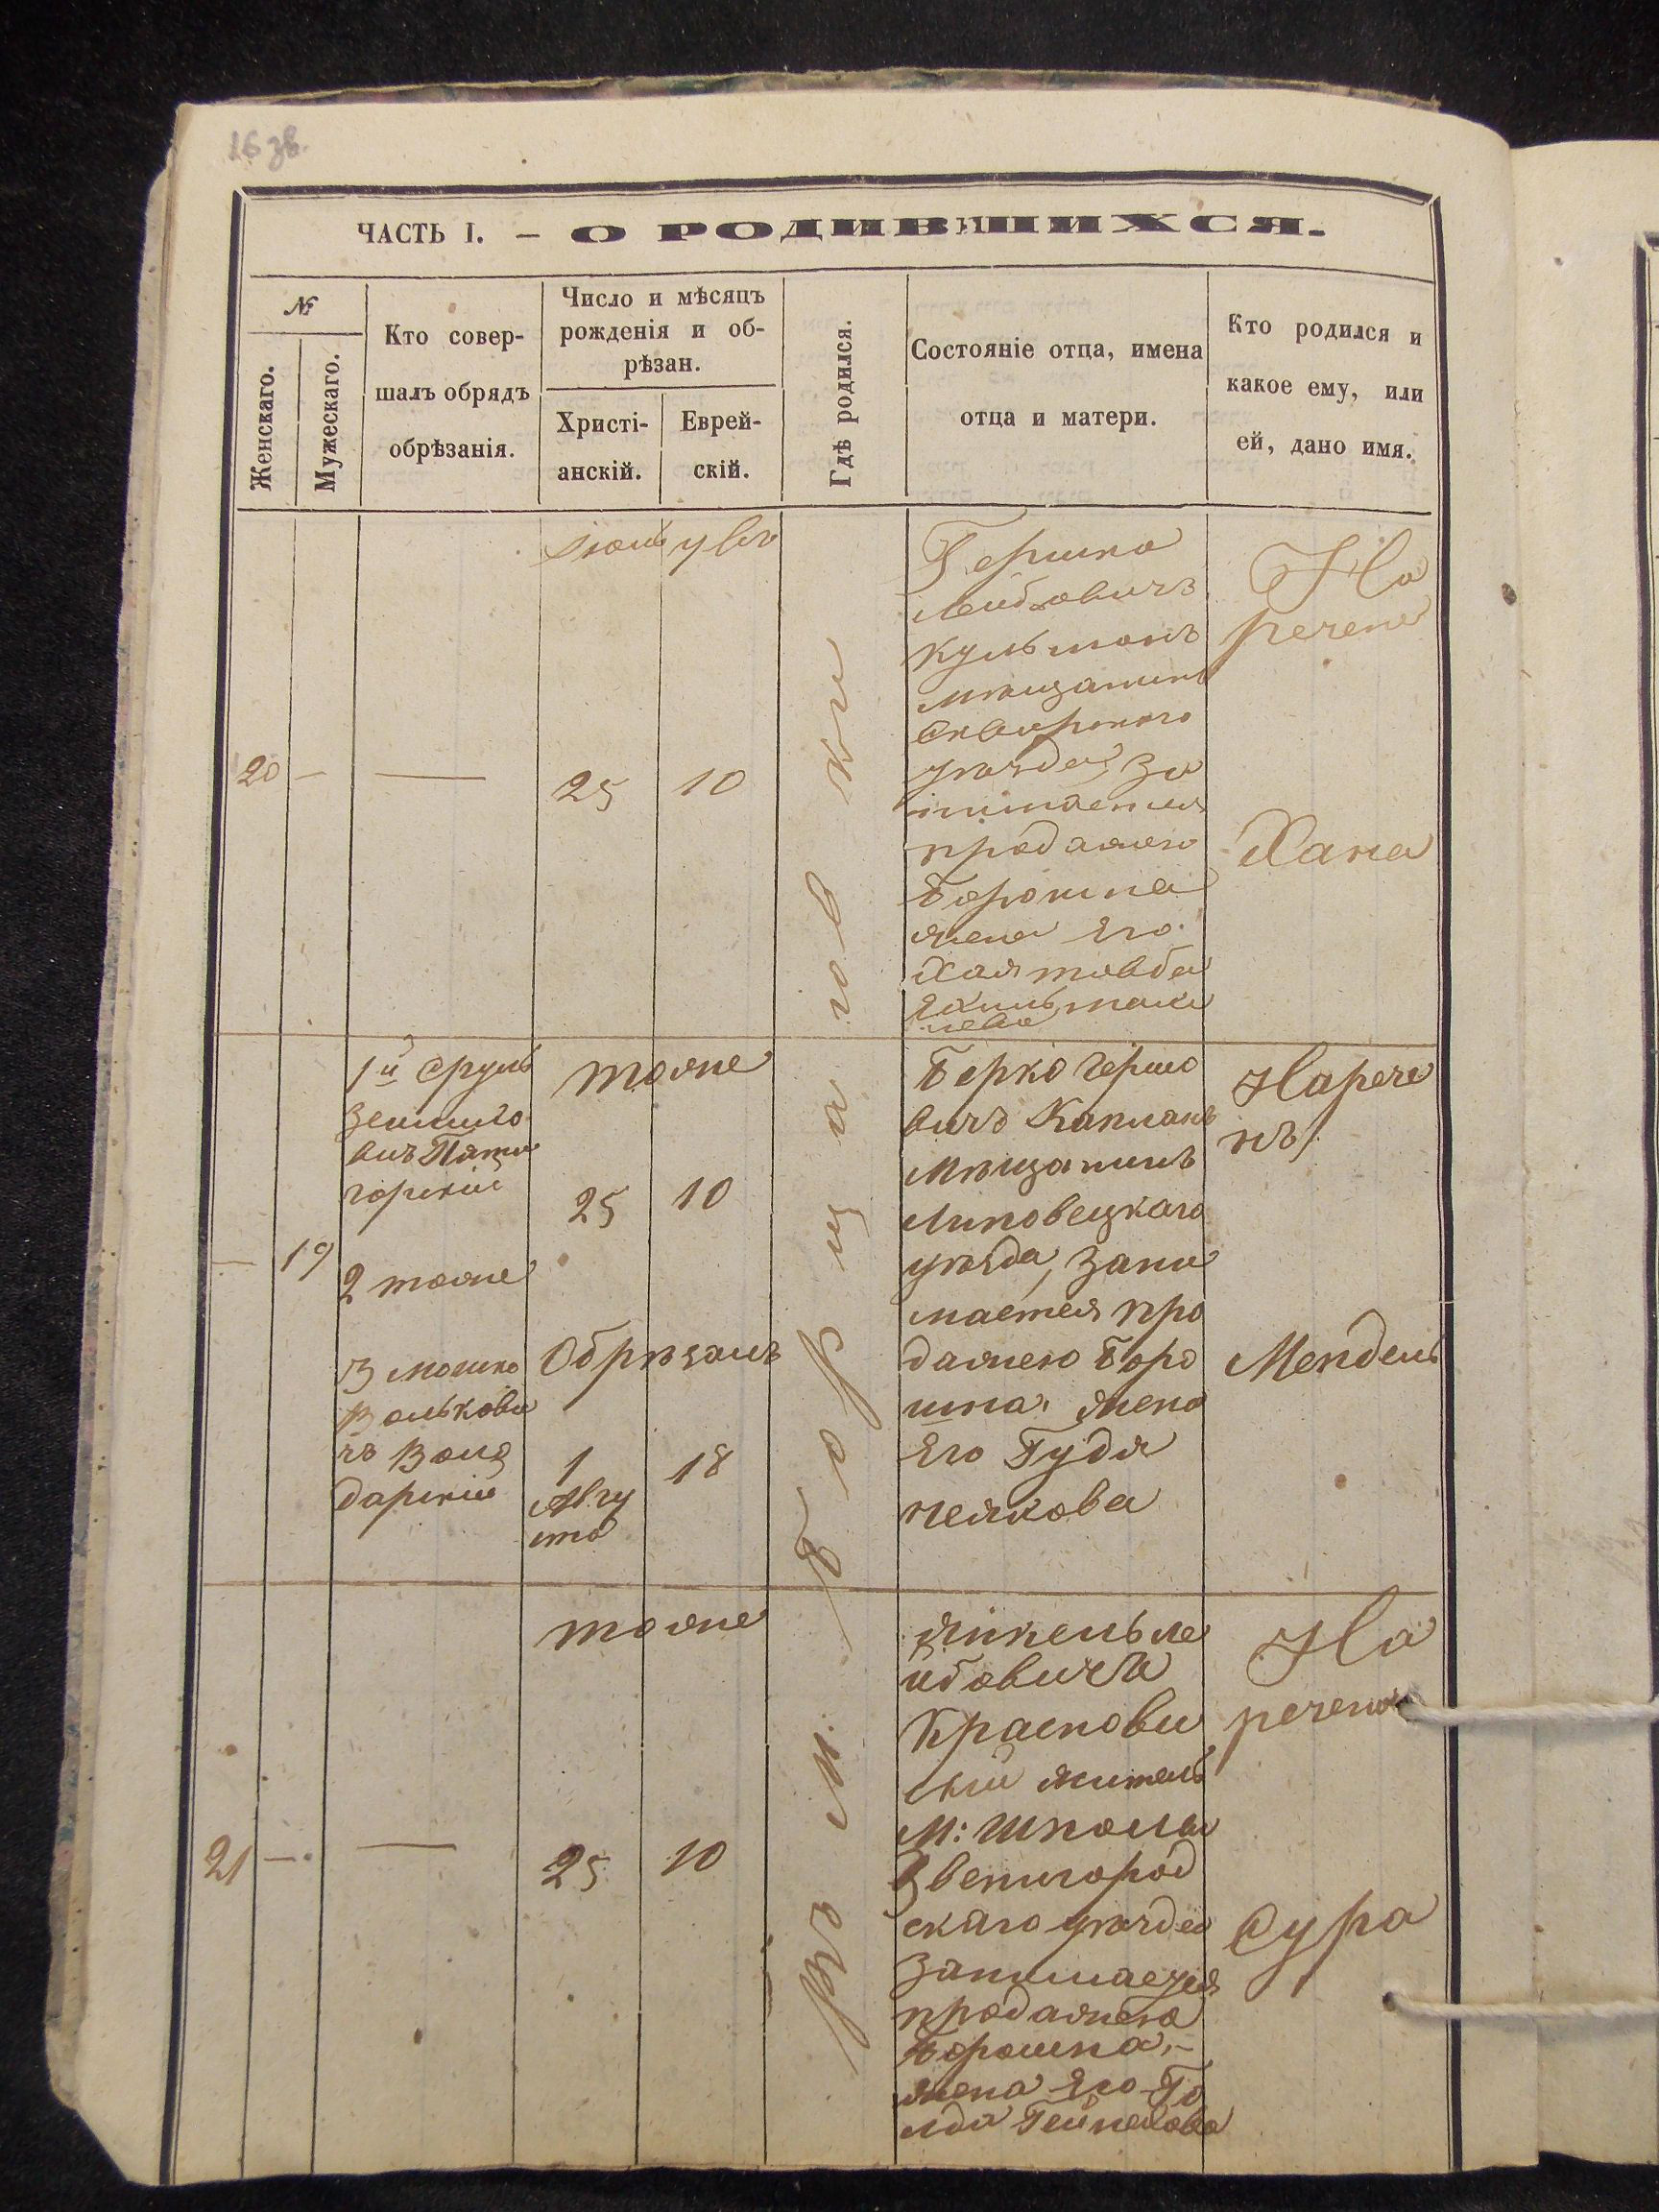 16 зв.
ЧАСТЬ I. – О РОДИВШИХСЯ.
№
Женскаго.
Мужескаго.
Кто совер-
шалъ обрядъ
обрѣзанія.
Число и мѣсяцъ
рожденія и об-
рѣзан.
Христі-
анскій.
Еврей-
скій.
Гдѣ родился.
Состояніе отца, имена
отца и матери.
Кто родился и
какое ему, или
ей, дано имя.
20 –
—
25
10
Гершко
Лейбовичъ
Кульманъ
мѣщанинъ
Сквирскаго
уѣзда, за
нимается
продажею
борошна
жена его
Хая товба
На
речена
Хана
– 19
1й Сруль
Зейлиго
вичъ Пяти
горскій
2 тоже
3 Мошко
Волькови
чъ Воло
дарскій
тоже
25
10
Обрѣзанъ
1
Авгу
ста
18
Берко Гершо
вичъ Капланъ
Мѣщанинъ
Липовецкаго
уѣзда, зани
мается про
дажею боро
шна. жена
Его Гудя
Нарече
нъ
Мендель
21 –
—
тоже
25
10
Янкель ле
йбовичъ
Краснови
скій житель
М: Шпола
Звенигород
скаго уѣзда
занимается
продажею
борошна, –
жена Его Го
лда
На
речена
Сура
Въ м. Борщаговки